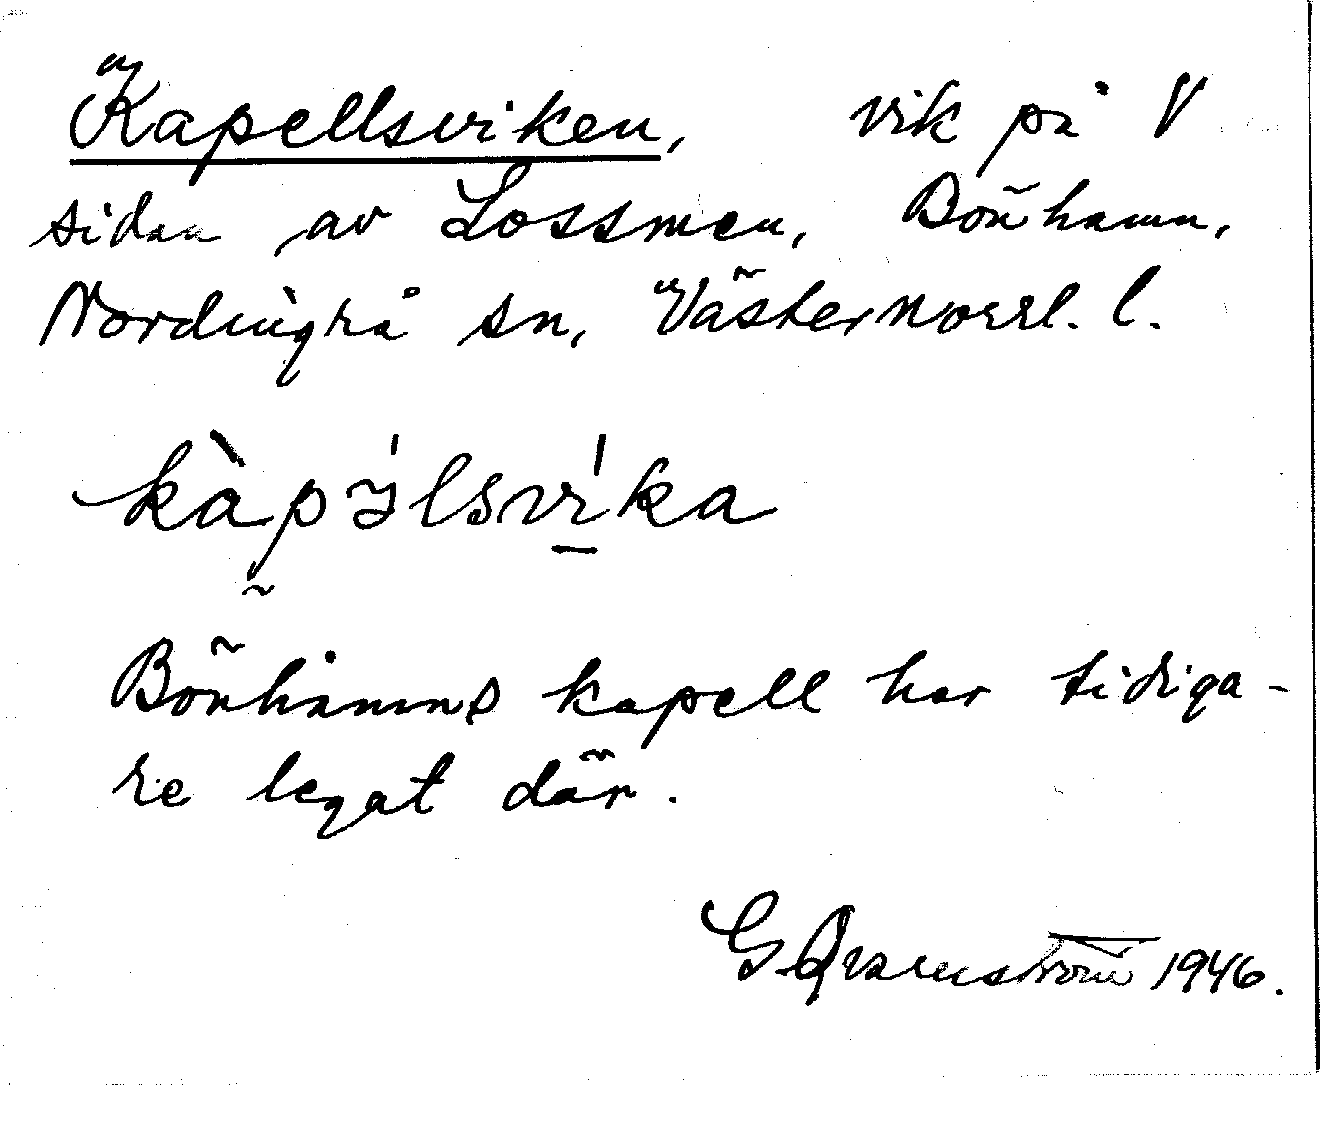 Kapellsviken, vik på V
sidan av Lossmen, Bönhamn,
Nordingrå sn, Västernorrl. l.
kàpə́lsvi̱̍ka
Bönhamns kapell har tidiga-
re legat där.
G Qvarnström 1946.